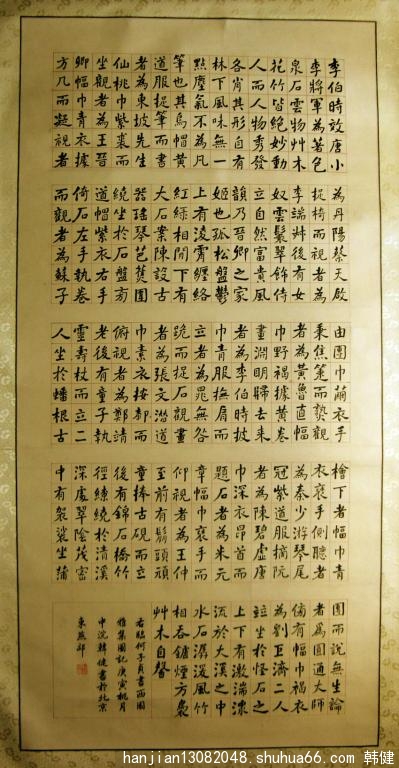 李伯時效唐小
李將軍為著色
泉石雲物艸木
花竹皆絕妙動
人而人物秀發
各肖其形自有
林下風味無一
點塵氣不為凡
筆也其烏帽黃
道服捉筆而書
者為東坡先生
仙桃巾紫裘而
坐觀者為王晉
卿幅巾青衣據
方几而凝視者
為丹陽蔡天啟
捉椅而視者為
李端艸後有女
奴雲鬟翠飾侍
立自然富貴風
韻乃晉卿之家
姬也孤松盤鬱
上有淩霄纏絡
紅綠相間下有
大石案陳設古
器瑤琴芭蕉圍
繞坐於石盤方
道帽紫衣右手
倚石左手執卷
而觀者為蘇子
由團巾繭衣手
秉蕉箑而熟觀
者為黃魯直幅
巾野褐據黃卷
畫淵明歸去來
者為李伯時披
巾青服撫肩而
立者為晁無咎
跪而捉石觀畫
者為張文潛道
巾素衣按膝而
俯視者為鄭靖
老後有童子執
靈壽杖而立二
人坐於蟠根古
檜下者幅巾青
衣袖手側聽者
為秦少游琴尾
冠紫道服摘阮
者為陳碧虛唐
巾深衣昂首而
題石者為米元
章幅巾袖手而
仰視者為王仲
至前有鬅頭頑
童捧古硯而立
後有錦石橋竹
徑繚繞於清溪
深處翠陰茂密
中有袈裟坐蒲
團而說無生論
者為圓通大師
傍有幅巾褐衣
為劉巨濟二人
竝坐於怪石之
上下有激湍潨
流於大溪之中
水石潺湲風竹
相吞爐煙方裊
艸木自馨
右臨何子貞書西園
雅集圖記庚寅桃月
中浣韓健書於北京
東燕郊
hanjian13082048.shuhua66.com 韩健